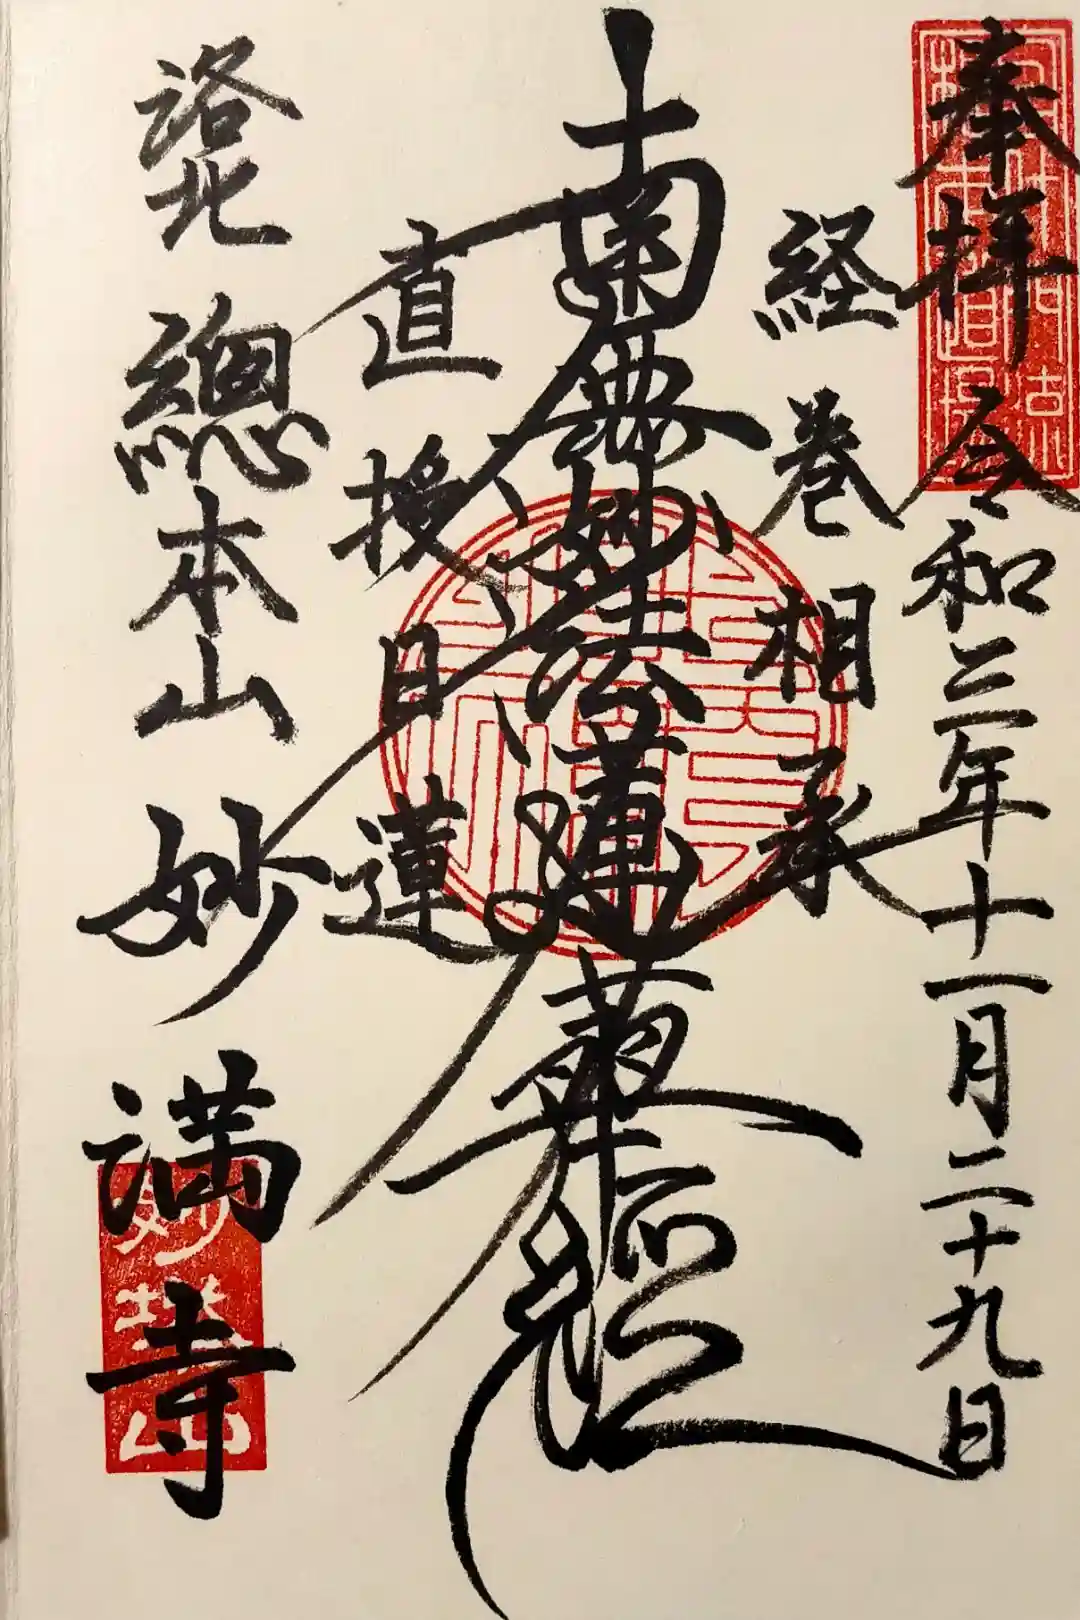 奉拝 令和三年十一月二十九日
経巻相承
南無妙法蓮華経
直授日蓮
洛北 總本山 妙満寺
妙塔山